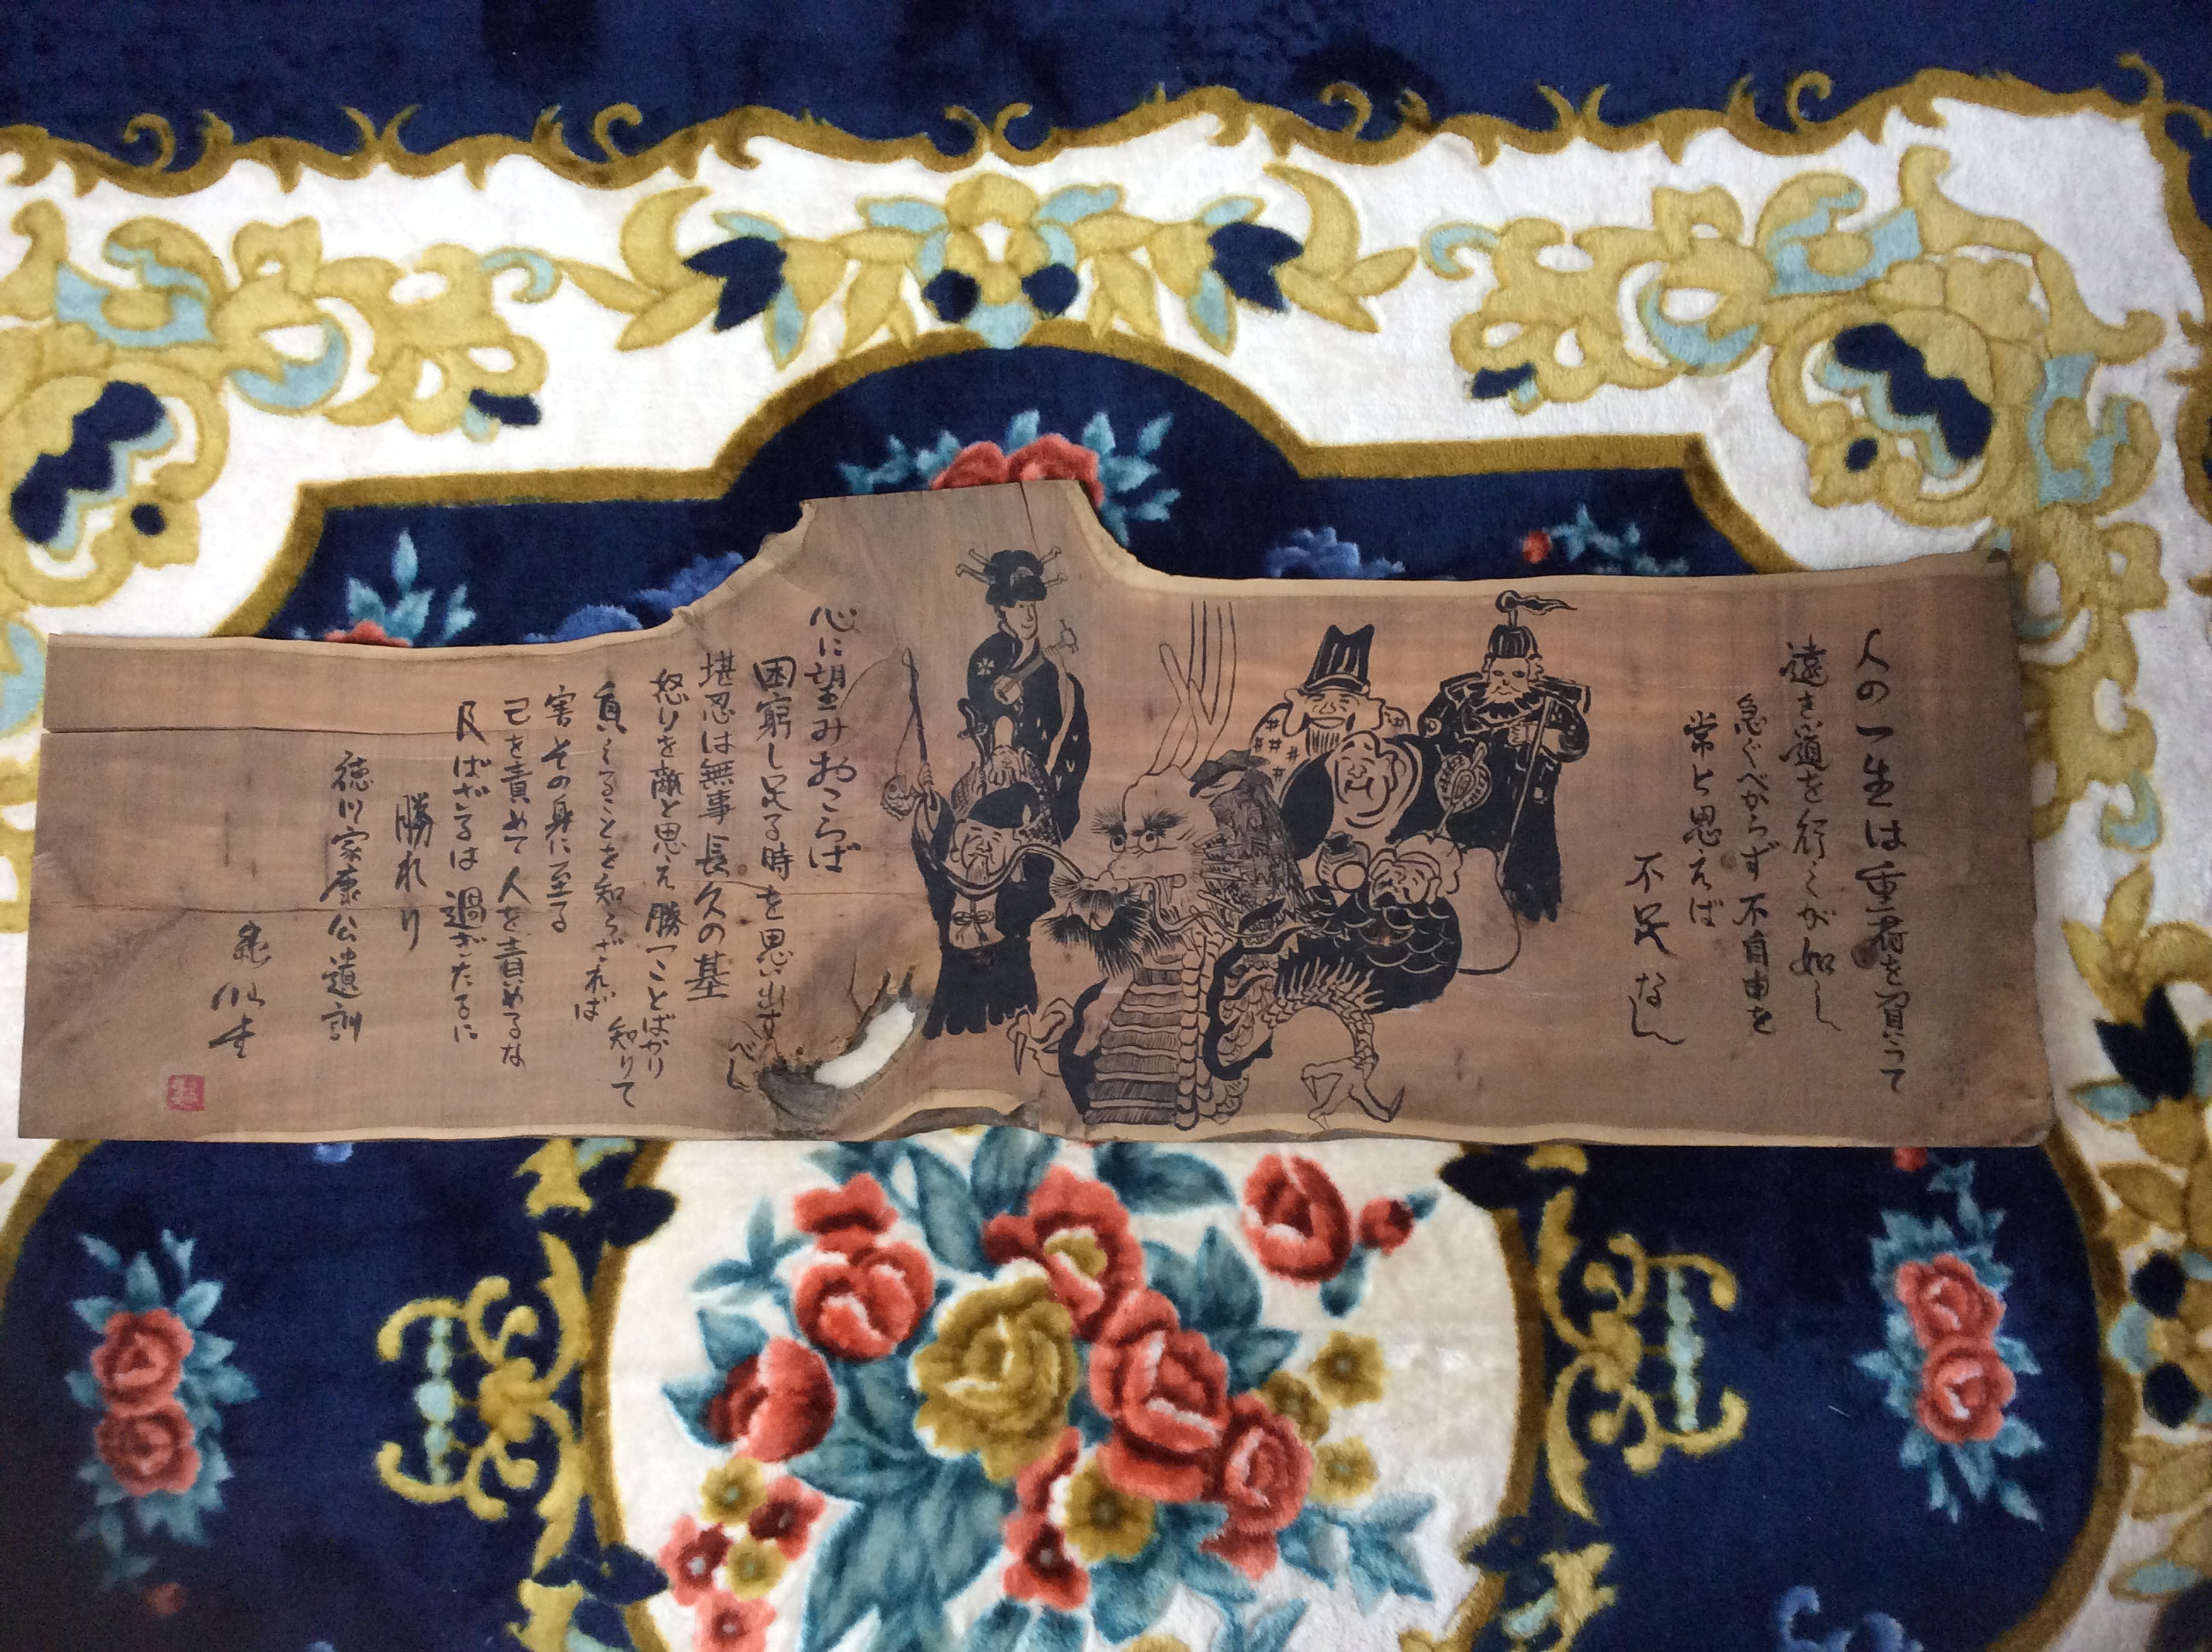 人の一生は重荷を負うて
遠き道を行くが如し
急ぐべからず不自由を
常と思えば
不足なし
心に望みおこらば
困窮し足る時を思い出す
べし
堪忍は無事長久の基
怒りを敵と思え勝つことばかり
知りて
負くることを知らざれば
害その身に至る
己を責めて人を責めるな
及ばざるは過ぎたるに
勝れり
徳川家康公遺訓